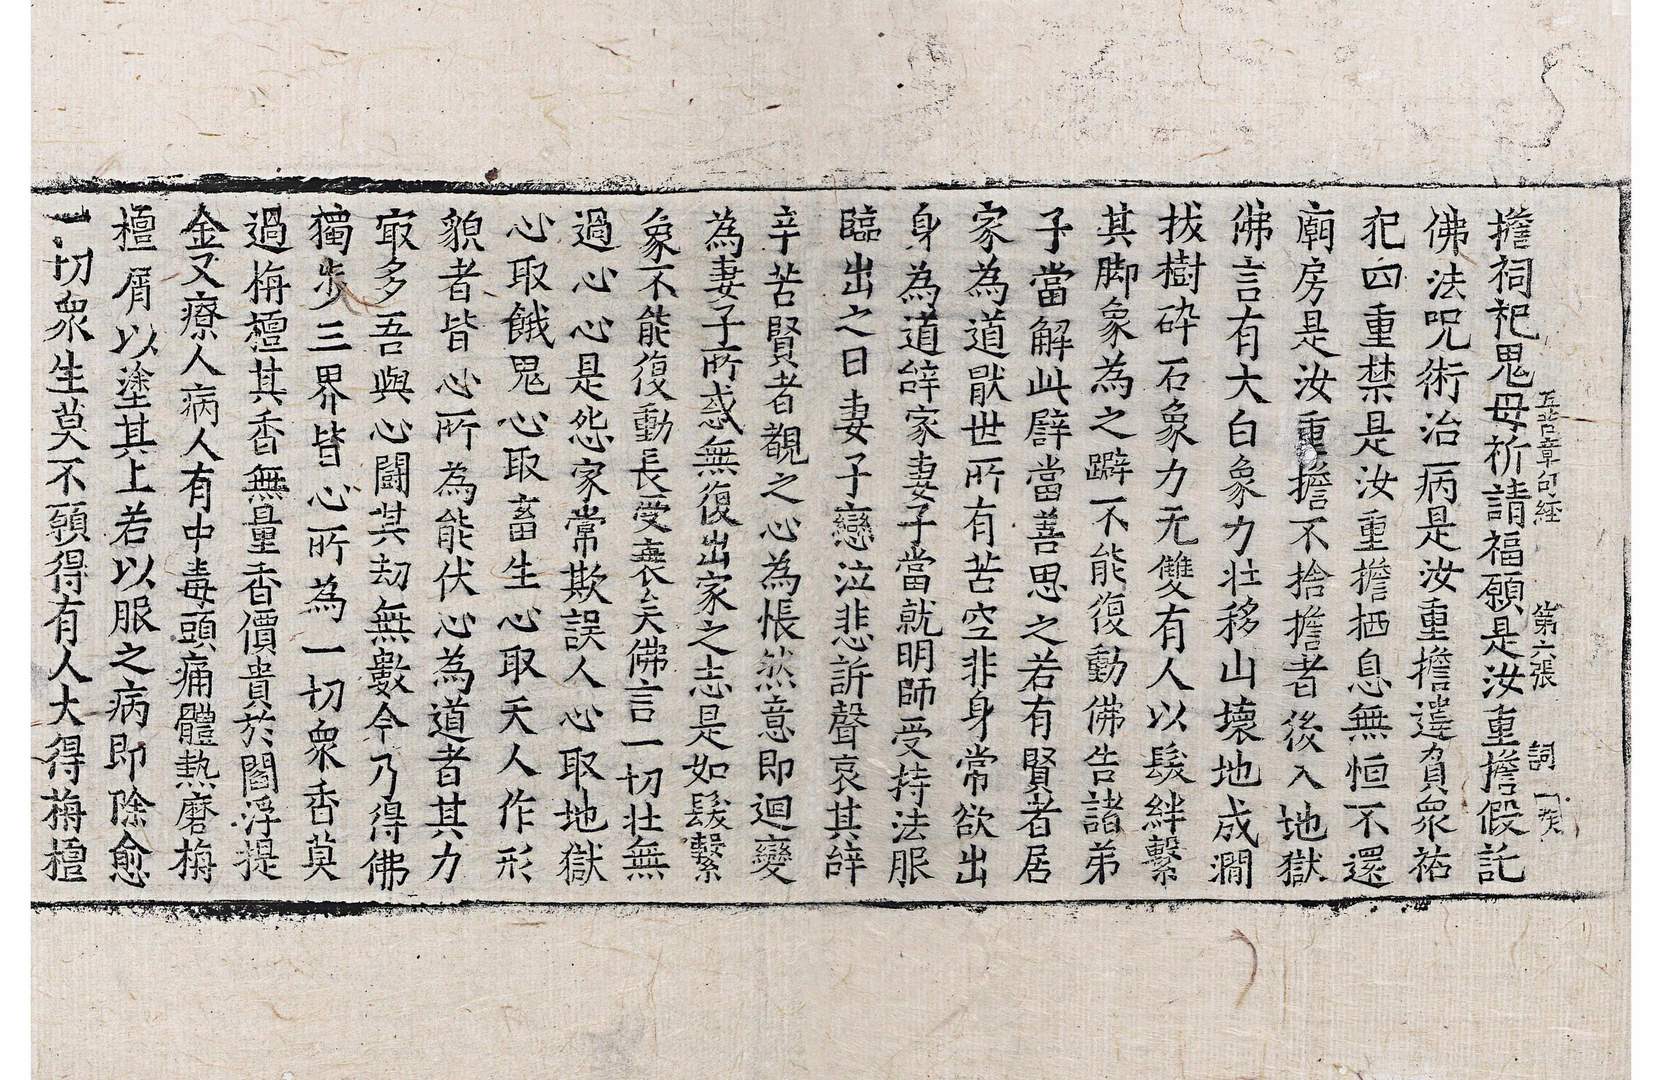 五苦章句經 第六張 詞
擔祠祀鬼母祈請福願是汝重擔假託
佛法呪術治病是汝重擔違負衆祐
犯四重禁是汝重擔栖息無恒不還
廟房是汝重擔不捨擔者後入地獄
佛言有大白象力壯移山壞地成澗
拔樹碎石象力无雙有人以髮絆繫
其脚象為之躃不能復動佛告諸弟
子當解此譬當善思之若有賢者居
家為道猒世所有苦空非身常欲出
身為道辝家妻子當就明師受持法服
臨出之日妻子戀泣悲訴聲哀其辝
辛苦賢者覩之心為悵然意即迴變
為妻子所惑無復出家之志是如髮繫
象不能復動長受喪矣佛言一切壯無
過心心是怨家常欺誤人心取地獄
心取餓鬼心取畜生心取天人作形
貌者皆心所為能伏心為道者其力
㝡多吾與心鬪其劫無數今乃得佛
獨步三界皆心所為一切衆香莫
過栴檀其香無量香價貴於閻浮提
金又療人病人有中毒頭痛體熱磨栴
檀屑以塗其上若以服之病即除愈
一切衆生莫不願得有人大得栴檀